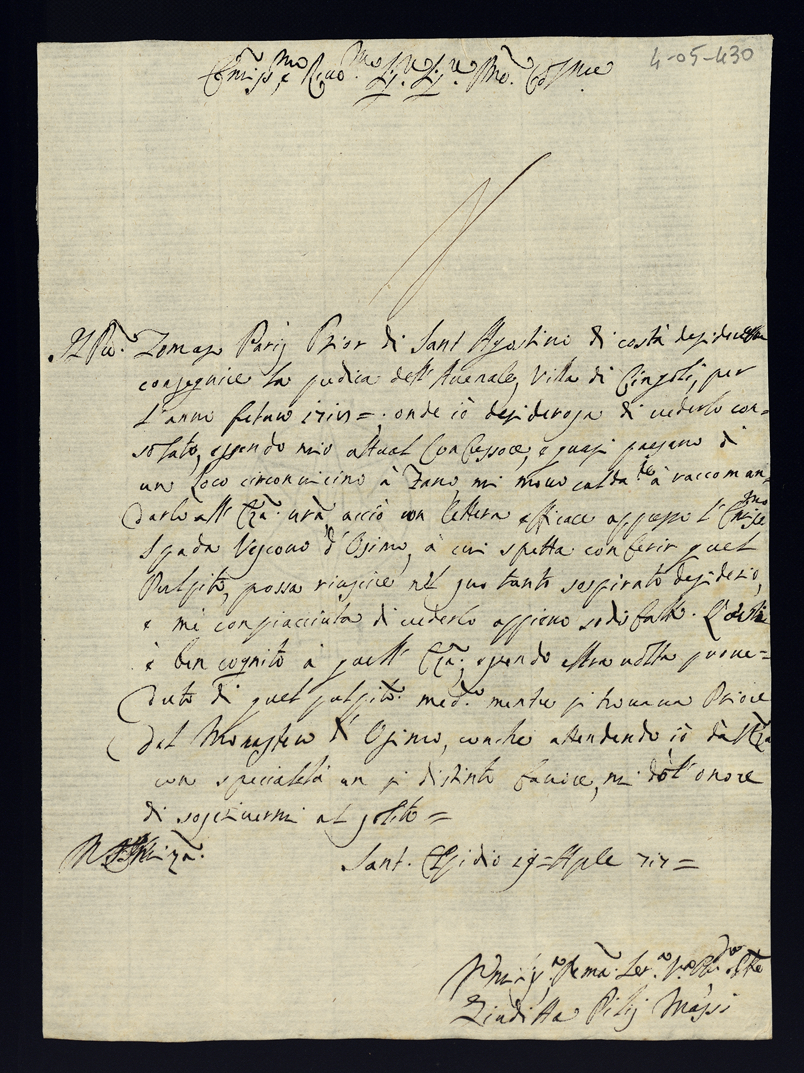 4-05-430
Emin.mo e Rev.mo Sig.re Sig.re Pne. Colmo
Il Pre. Tomaso Parisi Prior di Sant Agostino di costà desidera
conseguire la predica dell' Avenale, Villa di Cingoli, per
l'anno futuro =, onde io desiderosa di vederlo con=
solato, essendo mio attual Confessore, e quasi paesano di
un loco circonvicino à Fano mi movo caldam.te à raccoman=
darlo all' Eza. vra, acciò con lettera efficace appresso l' Em.mo
Spada Vescovo d'Osimo, à cui spetta conferir quel
Pulpito, possa riuscire nel suo tanto sospirato desiderio,
e mi compiacciuta di vederlo appieno sodisfatto.
è ben cognito à quell' Eza., essendo altra volta prove=
duto di quel pulpito med.o mentre si trovava Priore
del Monastero d' Osimo, con che attendendo io dall' Eza
con specialità un si distinto favore, mi dò l'onore
di soscrivermi al solito =
Sant. Elpidio Aple =
Giuditta Pilij Massi